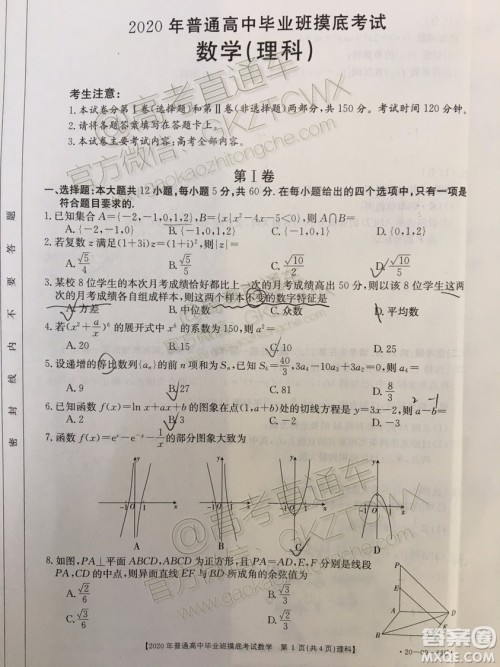 2020年普通高中毕业班摸底考试
数学(理科)
考生注意:
1.本试卷分第Ⅰ卷(选择题)和第Ⅱ卷(非选择题)两部分,共150分。考试时间120分钟。
2.请将各题答案填写在答题卡上。
3.本试卷主要考试内容:高考全部内容。
第Ⅰ卷
一、选择题:本大题共12小题,每小题5分,共60分.在每小题给出的四个选项中,只有一项是
符合题目要求的.
1.已知集合A={-2,-1,0,1,2},B={x|x²-4x-5<0},则A∩B=
A.{-2,-1,0} B.{-1,0,1,2} C.{-1,0,1} D.{0,1,2}
2.若复数z满足(1+3i)z=(1+i)²,则|z|=
A.√5/4 B.√5/5 C.√10/2 D.√10/5
3.某校8位学生的本次月考成绩恰好都比上一次的月考成绩高出50分,则以该8位学生这两
次的月考成绩各自组成样本,则这两个样本不变的数字特征是
A.方差 B.中位数 C.众数 D.平均数
4.若(x²+a/x)⁶的展开式中x⁶的系数为150,则a²=
A.20 B.15 C.10 D.25
5.设递增的等比数列{aₙ}的前n项和为Sₙ,已知S₄=40/3,3a₄-10a₃+3a₂=0,则a₄=
A.9 B.27 C.81 D.8/3
6.已知函数f(x)=ln x+ax+b的图象在点(1,a+b)处的切线方程是y=3x-2,则a-b=
A.2 B.3 C.-2 D.-3
a -1
7.函数f(x)=eˣ-e⁻ˣ-1/x的部分图象大致为
y y y y
-1 O 1 x -1 O 1 x -1 O 1 x -1 O 1 x
A B C D
8.如图,PA⊥平面ABCD,ABCD为正方形,且PA=AD,E,F分别是线段
PA,CD的中点,则异面直线EF与BD所成角的余弦值为
A.√2/6 B.√3/3
C.√3/6 D.√2/3
P
E
A
D
B
C
【2020年普通高中毕业班摸底考试数学 第1页(共4页)理科】
密封线内不要答题
@高考直通车
官方微信:GKZTCWX
gaokaozhitongche.com
答案圈
MXQE.COM